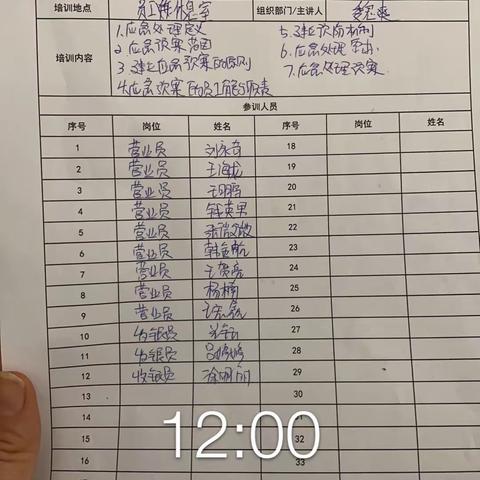 培训地点 员工休息室 组织部门/主讲人
培训内容
1.应急处理定义
2.应急预案范围
3.建立应急预案的原则
4.应急预案的员工能与职责
5.建立预防机制
6.应急处理
7.应急处理预案
参训人员
序号 岗位 姓名 序号 岗位 姓名
1 营业员 刘永奇 18
2 营业员 王海龙 19
3 营业员 王明 20
4 营业员 钱英果 21
5 营业员 22
6 营业员 韩 航 23
7 营业员 王贺亮 24
8 营业员 杨楠 25
9 营业员 26
10 收银员 27
11 收银员 28
12 收银员 徐明丽 29
13 30
14
15
16 33
12:00